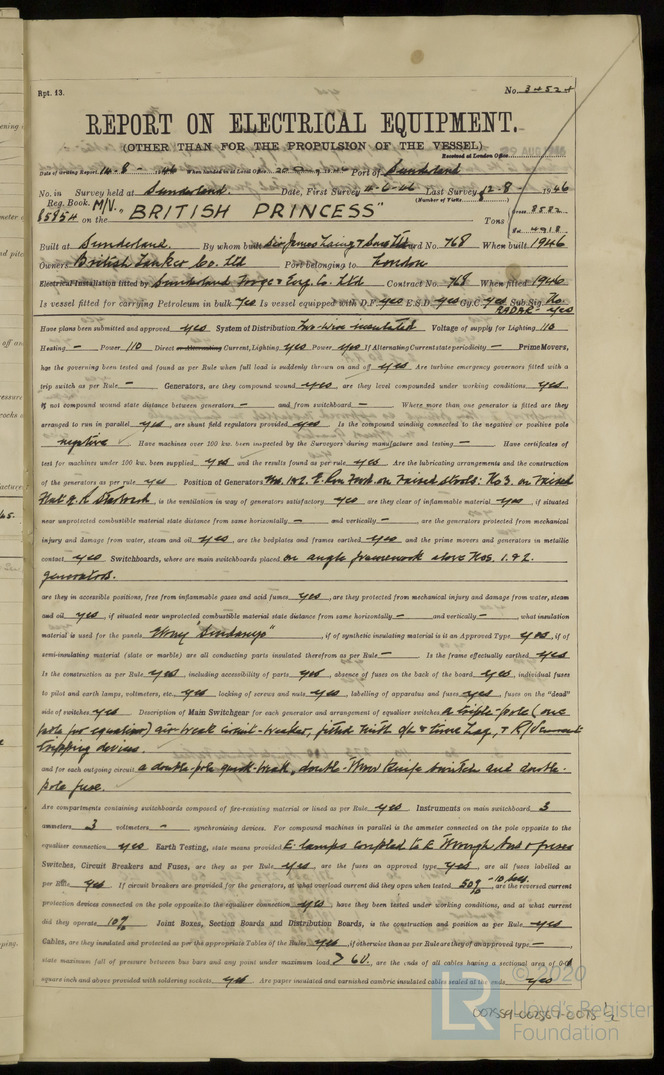 Rpt. 13.
No. 34524
REPORT ON ELECTRICAL EQUIPMENT.
(OTHER THAN FOR THE PROPULSION OF THE VESSEL)
Received at London Office 29 AUG 1946
Date of writing Report 14-8-1946 When handed in at Local Office 20 1946 Port of Sunderland
No. in Survey held at Sunderland. Date, First Survey 4-6-46 Last Survey 12-8-1946
Reg. Book. (Number of Visits
85854 on the M/V. "BRITISH PRINCESS" Tons Gross 8582
Net 4918
Built at Sunderland. By whom built Sir James Laing & Sons Ltd Yard No. 768 When built 1946
Owners British Tanker Co. Ltd Port belonging to London
Electrical Installation fitted by Sunderland Forge & Eng. Co. Ltd Contract No. 768 When fitted 1946
Is vessel fitted for carrying Petroleum in bulk Yes Is vessel equipped with D.F. yes E.S.D. yes Gy.C. yes Sub.Sig. No
RADAR - yes
Have plans been submitted and approved yes System of Distribution Two-wire insulated Voltage of supply for Lighting 110
Heating - Power 110 Direct or Alternating Current, Lighting yes Power yes If Alternating Current state periodicity - Prime Movers,
has the governing been tested and found as per Rule when full load is suddenly thrown on and off yes Are turbine emergency governors fitted with a
trip switch as per Rule - Generators, are they compound wound yes, are they level compounded under working conditions yes
if not compound wound state distance between generators - and from switchboard - Where more than one generator is fitted are they
arranged to run in parallel yes, are shunt field regulators provided yes Is the compound winding connected to the negative or positive pole
negative Have machines over 100 kw. been inspected by the Surveyors during manufacture and testing - Have certificates of
test for machines under 100 kw. been supplied yes and the results found as per rule yes Are the lubricating arrangements and the construction
of the generators as per rule yes Position of Generators Nos. 1 & 2. E. Rm Fwd. on raised stools: No 3. on raised
flat E.R. Starboard, is the ventilation in way of generators satisfactory yes are they clear of inflammable material yes, if situated
near unprotected combustible material state distance from same horizontally - and vertically -, are the generators protected from mechanical
injury and damage from water, steam and oil yes, are the bedplates and frames earthed yes and the prime movers and generators in metallic
contact yes Switchboards, where are main switchboards placed on angle framework above Nos. 1 & 2.
generators.
are they in accessible positions, free from inflammable gases and acid fumes yes, are they protected from mechanical injury and damage from water, steam
and oil yes, if situated near unprotected combustible material state distance from same horizontally - and vertically -, what insulation
material is used for the panels Ebony "Sindanyo", if of synthetic insulating material is it an Approved Type yes, if of
semi-insulating material (slate or marble) are all conducting parts insulated therefrom as per Rule - Is the frame effectually earthed yes
Is the construction as per Rule yes, including accessibility of parts yes, absence of fuses on the back of the board yes, individual fuses
to pilot and earth lamps, voltmeters, etc. yes locking of screws and nuts yes, labelling of apparatus and fuses yes, fuses on the "dead"
side of switches yes Description of Main Switchgear for each generator and arrangement of equaliser switches a triple-pole (one
pole for equaliser) air-break circuit-breaker, fitted with o/l & time lag, & R/ current
tripping devices.
and for each outgoing circuit a double-pole quick-break, double-throw knife switch and double-
pole fuse.
Are compartments containing switchboards composed of fire-resisting material or lined as per Rule yes Instruments on main switchboard 3
ammeters 3 voltmeters - synchronising devices. For compound machines in parallel is the ammeter connected on the pole opposite to the
equaliser connection yes Earth Testing, state means provided E. lamps coupled to E through and fuses
Switches, Circuit Breakers and Fuses, are they as per Rule yes, are the fuses an approved type yes, are all fuses labelled as
per Rule yes If circuit breakers are provided for the generators, at what overload current did they open when tested 50% - 10 secs, are the reversed current
protection devices connected on the pole opposite to the equaliser connection yes, have they been tested under working conditions, and at what current
did they operate 10% Joint Boxes, Section Boards and Distribution Boards, is the construction and position as per Rule yes
Cables, are they insulated and protected as per the appropriate Tables of the Rules yes, if otherwise than as per Rule are they of an approved type -,
state maximum fall of pressure between bus bars and any point under maximum load > 6v., are the ends of all cables having a sectional area of 0·04
square inch and above provided with soldering sockets yes Are paper insulated and varnished cambric insulated cables sealed at the ends yes
© 2020
LR Lloyd's Register
Foundation
007559-007567-0075 1/2